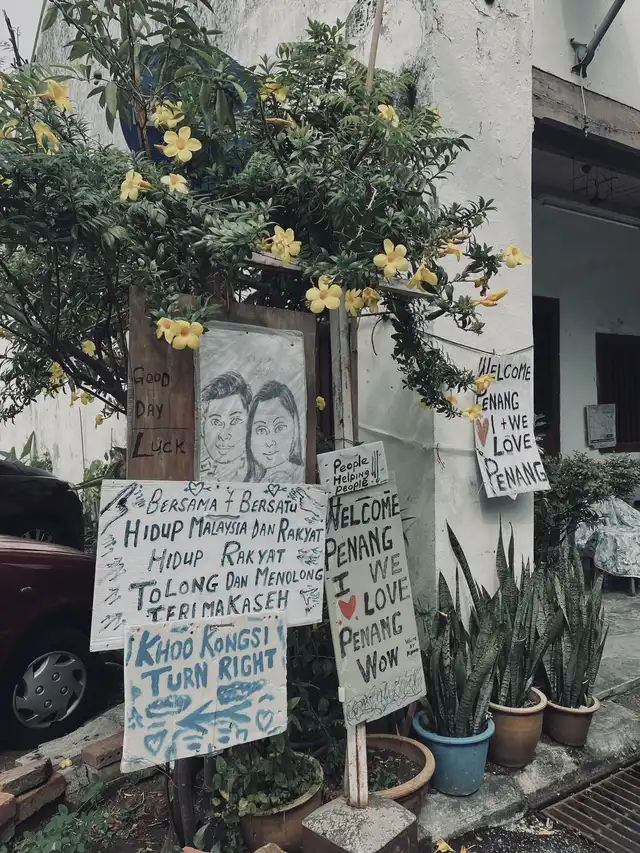 GOOD
DAY
LUCK
BERSAMA 7 BERSATU
HIDUP MALAYSIA DAN RAKYAT
HIDUP RAKYAT
TOLONG DAN MENOLONG
TERIMAKASEH
KHOO KONGSI
TURN RIGHT
People
HELPING
PEOPLE
WELCOME
PENANG
I WE
LOVE
PENANG
WOW
WELCOME
PENANG
I + WE
LOVE
PENANG